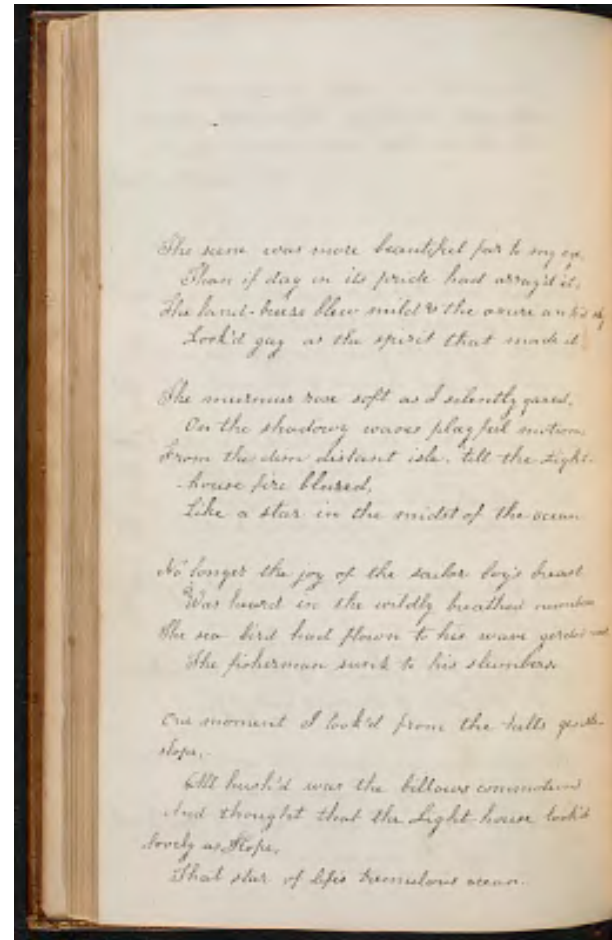 The scene was more beautiful far to my eye,
Than if day in its pride had array'd it,
The land-breeze blew mild & the azure arch'd sky
Look'd gay as the spirit that made it.
The murmur rose soft as I silently gazed,
On the shadowy waves playful motion,
From the dim distant isle, 'till the Light-
house fire blazed,
Like a star in the midst of the ocean
No longer the joy of the sailor boy's breast
Was heard in the wildly breathed numbers
The sea bird had flown to his wave
The fisherman sunk to his slumbers.
One moment I look'd from the hills gentle
slope,
All hush'd was the billows commotion
And thought that the Light house look'd
lovely as Hope,
That star of life's tremulous ocean.